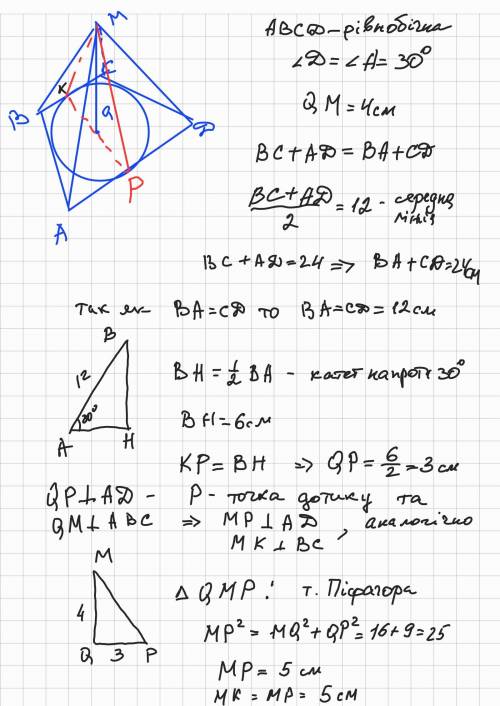 M
K
C
B
Q
D
P
A
ABCD - рівнобічна
∠D = ∠A = 30°
QM = 4см
BC + AD = BA + CD
BC + AD / 2 = 12 - середня лінія
BC + AD = 24 => BA + CD = 24см
так як BA = CD то BA = CD = 12 см
B
12
30°
A H
BH = 1/2 BA - катет напроти 30°
BH = 6см
KP = BH => QP = 6/2 = 3 см
QP ⊥ AD - P - точка дотику та
QM ⊥ ABC => MP ⊥ AD , аналогічно
MK ⊥ BC
M
4
Q 3 P
Δ QMP : т. Піфагора
MP² = MQ² + QP² = 16 + 9 = 25
MP = 5 см
MK = MP = 5 см